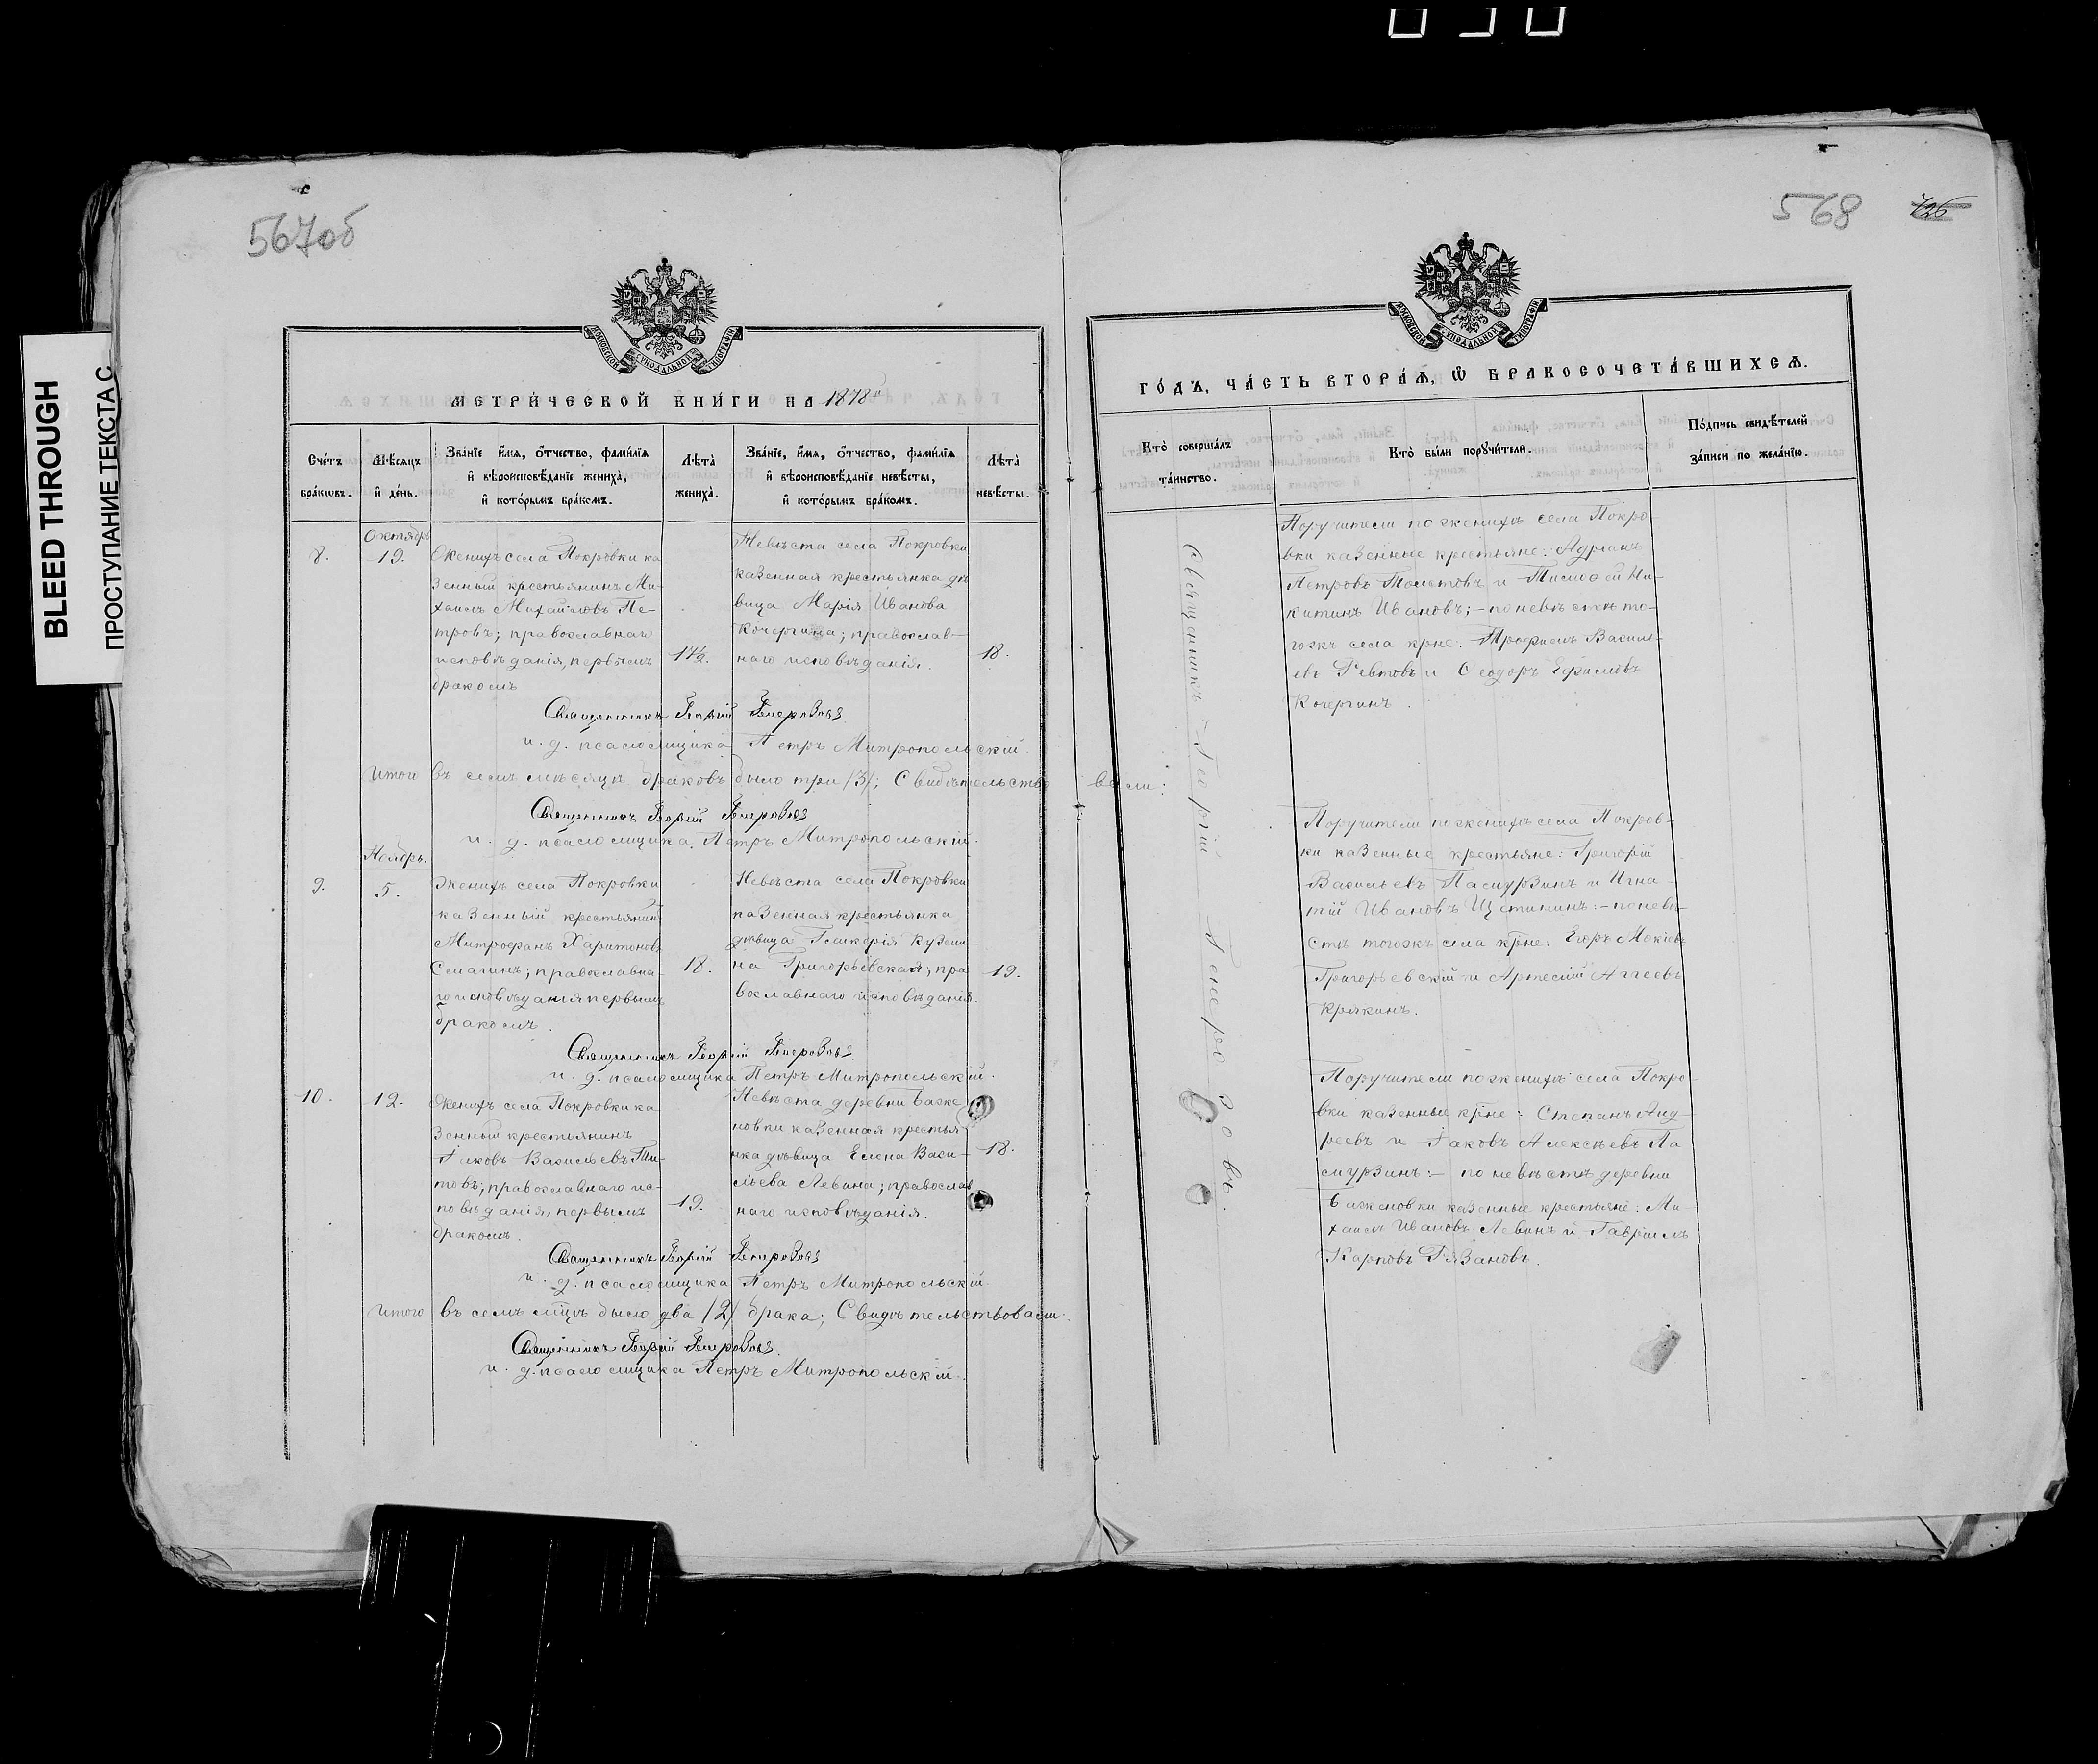 BLEED THROUGH
ПРОСТУПАНИЕ ТЕКСТА С.
567об
МОСКОВСКОЙ СѴНОДАЛЬНОЙ ТИПОГРАФІИ
МЕТРИ́ЧЕСКОЙ КНИ́ГИ НА 1878й
Сче́тъ бра́кѡвъ.
Мѣ́сяцъ и҆ де́нь.
Зва́нїе и҆́мя, ѻ҆́тчество, фами́лїя
и҆ вѣроисповѣ́данїе жениха̀,
и҆ кото́рымъ бра́комъ.
Лѣта̀ жениха̀.
Зва́нїе, и҆́мя, ѻ҆́тчество, фами́лїя
и҆ вѣроисповѣ́данїе невѣ́сты,
и҆ кото́рымъ бра́комъ.
Лѣта̀ невѣ́сты.
Октябрь
8.
19.
Женихъ села Покровки ка
зенный крестьянинъ Ми-
хаилъ Михайловъ Пе-
тровъ; православнаго
исповѣданія, первымъ
бракомъ
Невѣста села Покровки
казенная крестьянка дѣ
вица Марія Иванова
Кочергина; православ-
наго исповѣданія.
18.
Священникъ Георгій Генерозовъ
и. д. псаломщика Петръ Митропольскій
Итого въ семъ мѣсяцѣ браковъ было три /3/; Свидѣтельство вали:
Священникъ Георгій Генерозовъ
и. д. псаломщика Петръ Митропольскій.
Ноябрь.
9.
5.
Женихъ села Покровки
казенный крестьянинъ
Митрофанъ Харитоновъ
православна
го исповѣданія первымъ
бракомъ.
18.
Невѣста села Покровки
казенная крестьянка
дѣвица Гликерія Кузьми-
на Григорьевская; пра
вославнаго исповѣданія.
19.
Священникъ Георгій Генерозовъ
и. д. псаломщика Петръ Митропольскій.
10.
12.
Женихъ села Покровки ка
зенный крестьянинъ
Іаковъ Васильевъ Ти-
товъ; православнаго ис-
повѣданія, первымъ
бракомъ.
19.
Невѣста деревни Баже
новки казенная крестья
нка дѣвица Елена Васи-
льева Левина; православ
наго исповѣданія.
18.
Священникъ Георгій Генерозовъ
и. д. псаломщика Петръ Митропольскій.
Итого въ семъ мцѣ было два /2/ брака; Свидѣтельствовали:
Священникъ Георгій Генерозовъ.
и. д. псаломщика Петръ Митропольскій.
568
726
МОСКОВСКОЙ СѴНОДАЛЬНОЙ ТИПОГРАФІИ
ГО́ДЪ, ЧА́СТЬ ВТОРА́Ѧ, Ѽ БРАКОСОЧЕТА́ВШИХСѦ.
Кто̀ соверша́лъ
та́инство.
Кто̀ бы́ли поручи́тели.
По́дпись свидѣ́телей
за́писи по жела́нїю.
Священникъ Георгій Генерозовъ.
Поручители по женихѣ села Покро-
вки казенные крестьяне: Адріанъ
Петровъ и Тимофей Ни-
китинъ Ивановъ; - по невѣстѣ то-
гожъ села крне: Трофимъ Василь-
евъ Ревтовъ и Ѳеодоръ Ефимовъ
Кочергинъ.
Поручители по женихѣ села Покров-
ки казенные крестьяне: Григорій
Васильевъ Пасмурзинъ и Игна-
тій Ивановъ Щетининъ: - по невѣ-
стѣ тогожъ села крне: Егоръ Мокіевъ
Григорьевскій и Артемій Аггеевъ
Крякинъ.
Поручители по женихѣ села Покро-
вки казенные крне: Степанъ Анд-
реевъ и Іаковъ Алексѣевъ Па
смурзинъ: - по невѣстѣ деревни
Баженовки казенные крестьяне: Ми-
хаилъ Ивановъ Левинъ и Гавріилъ
Карповъ Рязановъ.